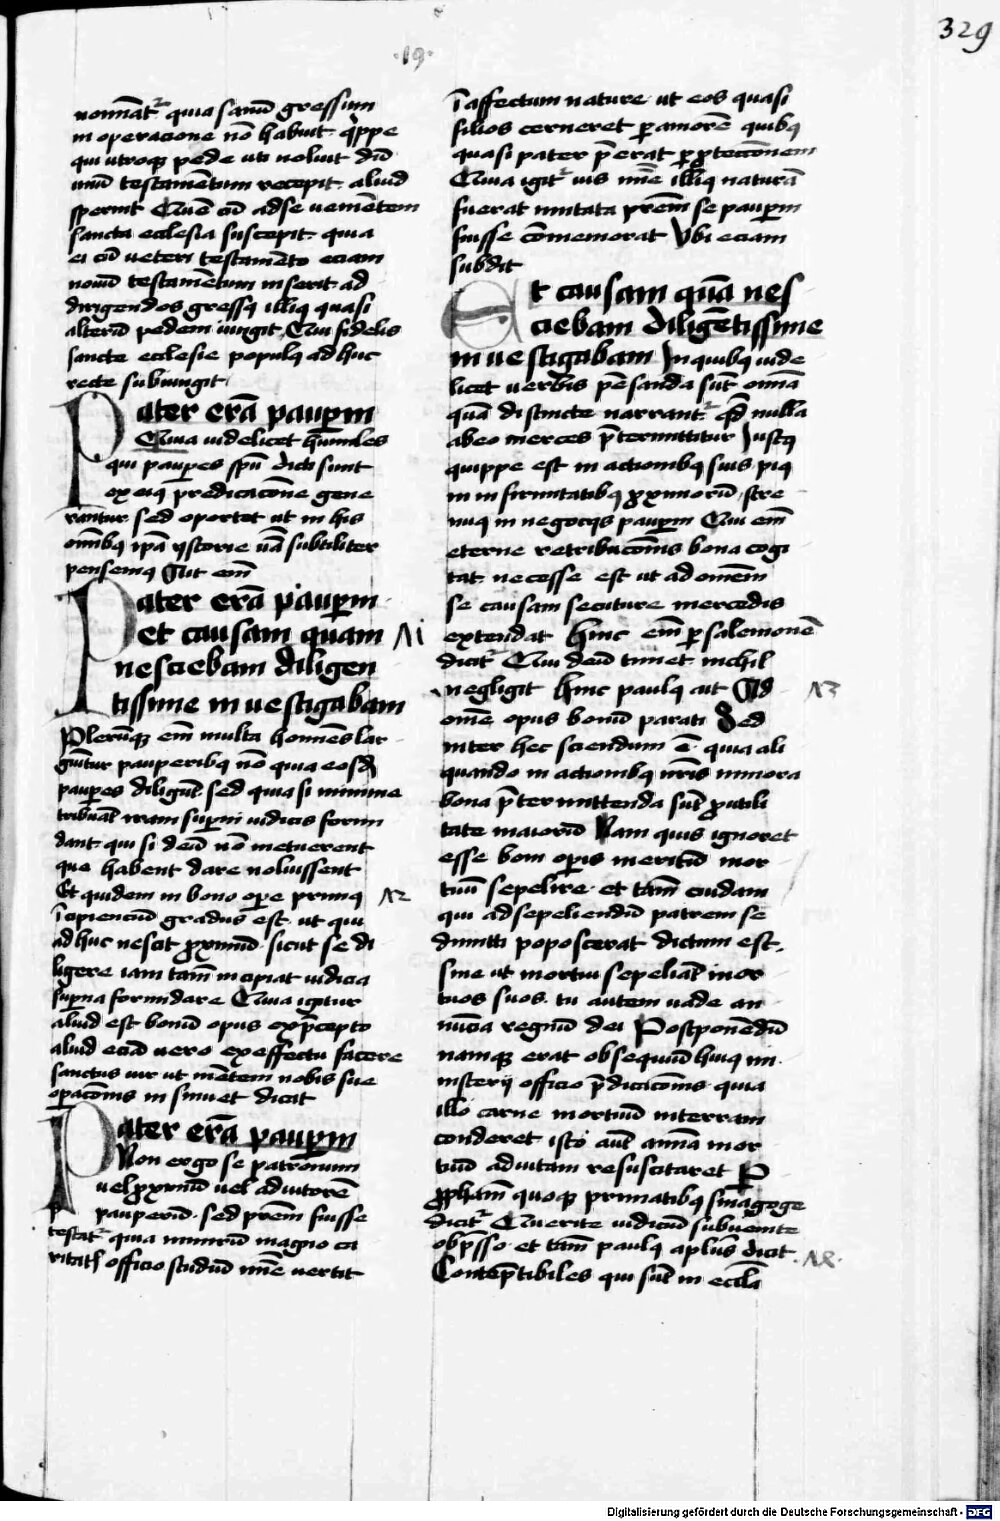 329
·19·
nomināt᷑ quia sanū gressum
in operacione nō habuit qͥppe
qui utroqꝫ pede uti noluit dū
unū testamētum recepit aliud
spernit Quē cū ad se uenientem
sancta ecclesia suscepit quia
ei cū ueteri testamēto eciam
nouū testamētum inserit ad
dirigendos gressꝰ illiꝰ quasi
alterū pedem iungit Qui fidelis
sancte ecclesie populꝰ ad huc
recte subiungit
Pater erā pauꝑum
Quia uidelicet hūmiles
qui pauꝑes spū dicti sunt
ex eiꝰ predicacōne gene
rantur sed oportet ut in his
omībꝰ ipā ystorie uā subtiliter
pensemꝰ Ait em̄
Pater erā pauꝑum
et causam quam
nesciebam diligen
tissime inuestigabam
N1
Plerūqꝫ em̄ multa homīes lar
giūtur pauperibꝰ nō quia eosdē
pauꝑes diligūt sed quia si minime
tribuāt iram suꝑni iudicis formi
dant qui si deū nō metuerent
que habent dare noluissent
Et quidem in bono oꝑe primꝰ
N2
īcipienciū gradus est ut qui
adhuc nescit ꝓximū sicut se di
ligere iam tam̄ incipiat iudicia
suꝑna formidare Quia igitur
aliud est bonū opus ex p̄cepto
aliud eciā uero ex effectu facere
sanctus uir ut mētem nobis sue
oꝑacōnis insinuet dicat
Pater erā pauꝑum
Non ergo se patronum
uel ꝓximū uel adiutorē
pauperū sed prēm fuisse
testat᷑ quia nimirū magno ca
ritatis officio studiū mīe uertit
ī affectum nature ut eos quasi
filios cerneret ꝑ amorē quibꝰ
quasi pater p̄erat ꝑ ꝓteccōnem
Quia igit᷑ uis mīe illiꝰ naturā
fuerat imitata prēm se pauꝑum
fuisse cōmemorat Vbi eciam
subdit
Et causam quā nes
ciebam diligētissime
inuestigabam In quibꝰ uide
licet uerbis pēsanda sūt omīa
quā distincte narrant᷑ qd̄ nulla
ab eo merces p̄termittitur Iustꝰ
quippe est in actionibꝰ suis piꝰ
in infirmitatibꝰ ꝓximorū stre
nuꝰ in negocijs pauꝑum Qui em̄
eterne retribucōnis bona cogi
tat necesse est ut ad omēm
se causam secuture mercedis
extendat Hinc em̄ ꝑ salemonē
dicit᷑ Qui deū timet nichil
negligit Hinc paulꝰ ait Ad
N3
omē opus bonū parati Sed
inter hec sciendum ē quia ali
quando in actionibꝰ nr̄is minora
bona p̄termittenda sūt ꝓ utili
tate maiorū Nam quis ignoret
esse boni oꝑis meritū mor
tuū sepelire et tam̄ cuidam
qui ad sepeliendū patrem se
dimitti poposcerat dictum est
sine ut mortui sepeliāt mor
tuos suos tu autem uade an
nūcia regnū dei Postponēdū
namqꝫ erat obsequiū huiꝰ mi
nisterij officio p̄dicacōnis quia
illo carne mortuū in terram
conderet isto aūt anīa mor
tuū ad uitam resuscitaret P
ꝓpham̄ quoqꝫ primatibꝰ sinagoge
dicit᷑ Querite iudiciū subuenite
obp̄sso et tam̄ paulꝰ aplūs dicit
N4
Contēptibiles qui sūt in eccl̄ia
Digitalisierung gefördert durch die Deutsche Forschungsgemeinschaft - DFG